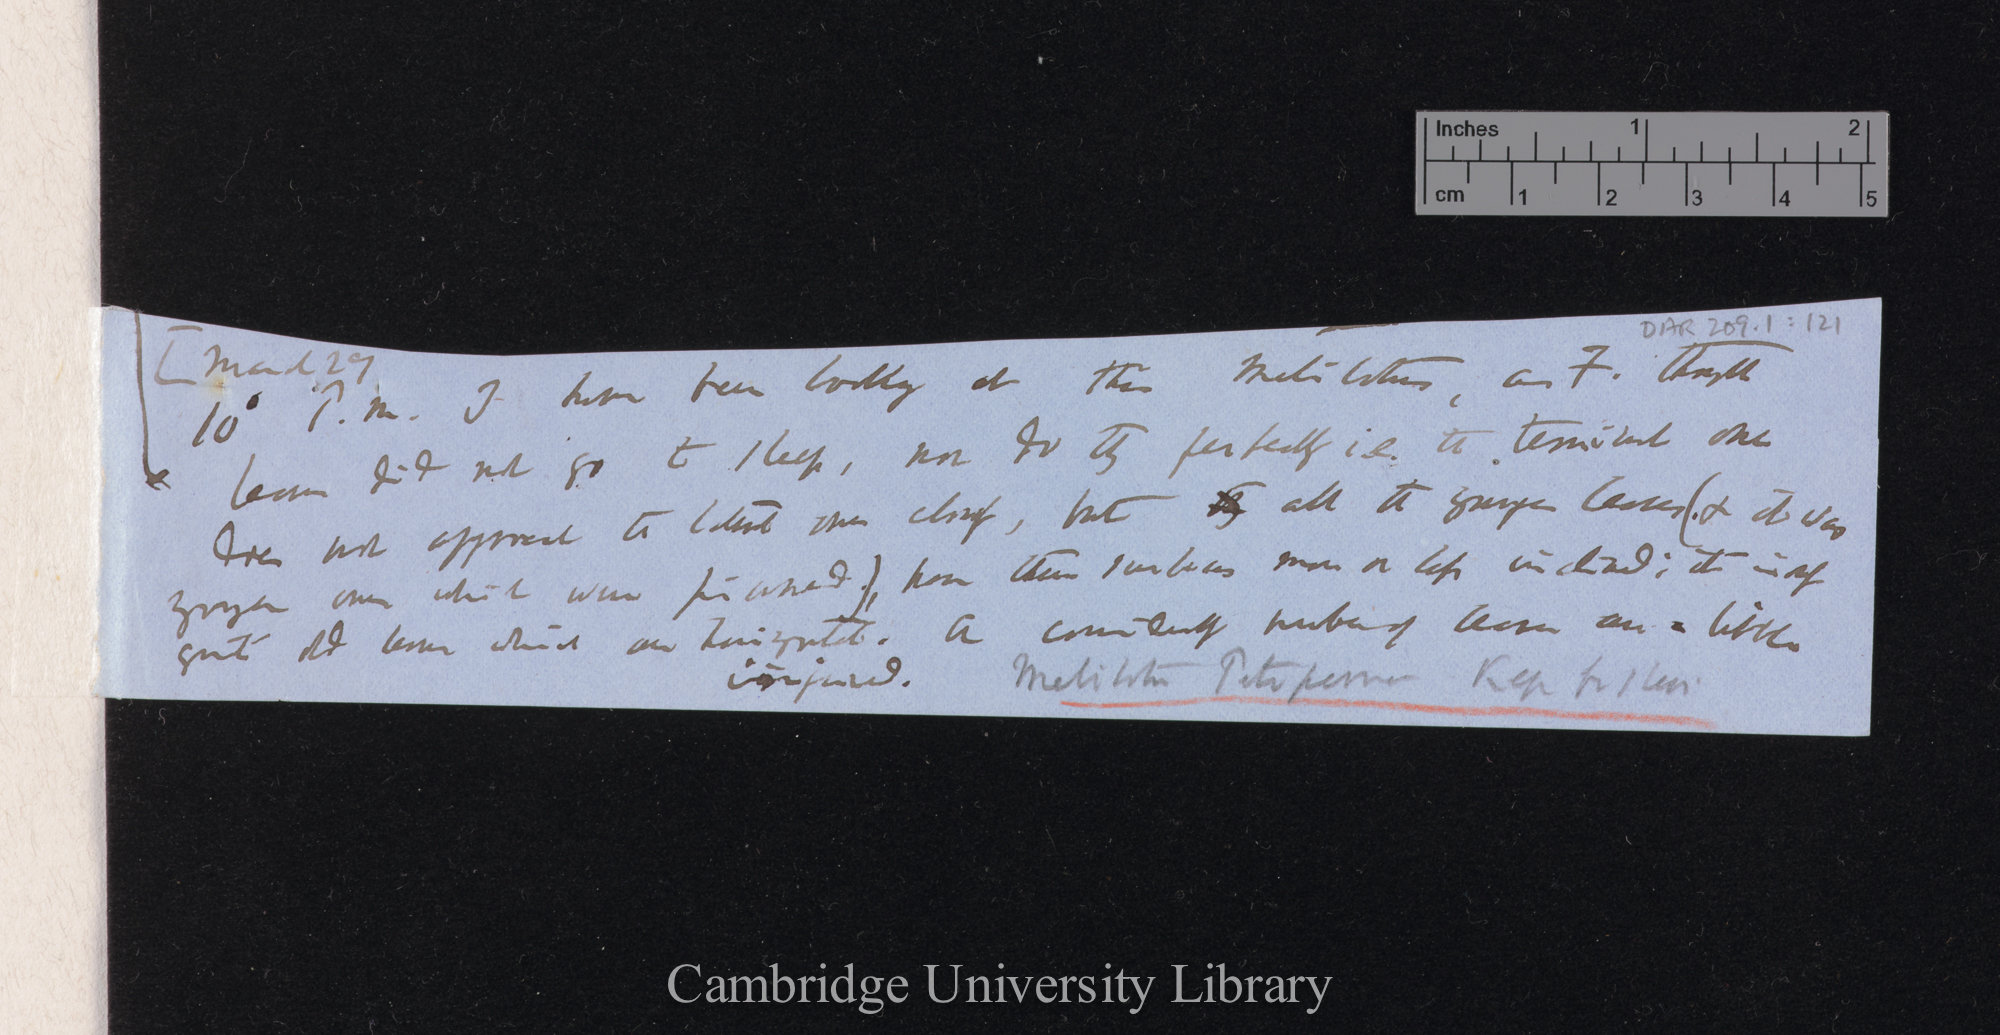 Inches 1 2
cm 1 2 3 4 5
DAR 209.1:121
[March 29
10° P.m. I have been looking at this Melilotus, as F. thought
leaves did not go to sleep, nor do they perfectly i.e. the terminal one
does not approach the lateral ones closely, but all the younger leaves (& it was
younger ones which were pinned), have their surfaces more or less inclined; it is only
quite old leaves which are horizontal. A considerable number of leaves are a little
injured.
Melilotus Petitpierreana Keep for
Cambridge University Library